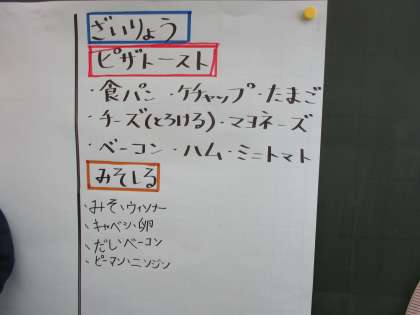 ざいりょう
ピザトースト
・食パン・ケチャップ・たまご
・チーズ(とろける)・マヨネーズ
・ベーコン・ハム・ミニトマト
みそしる
・みそ・ウィンナー
・キャベツ・卵
・だし・ベーコン
・ピーマン・ニンジン